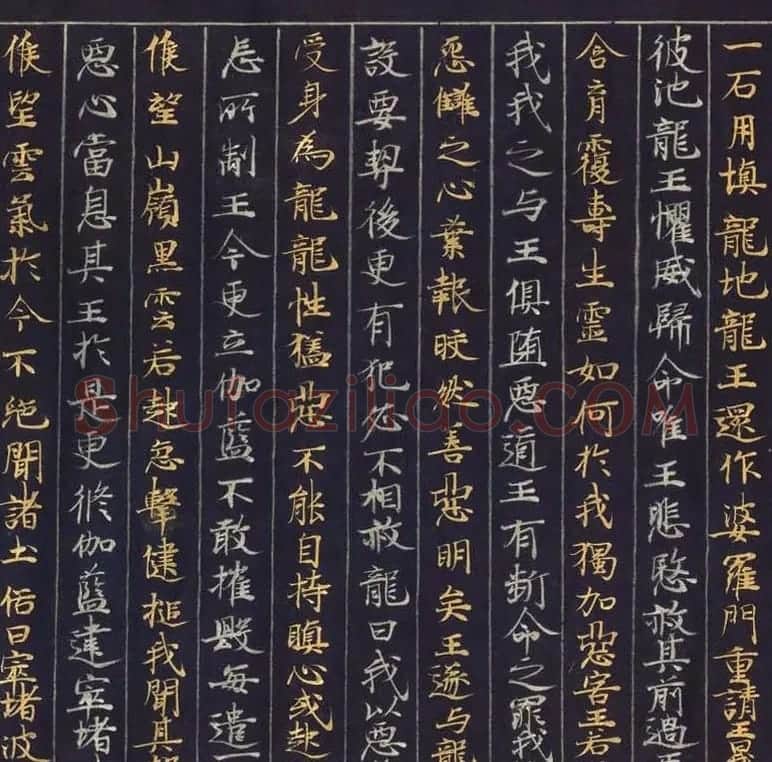 一石用填龍地龍王還作婆羅門重請王曰
彼池龍王懼威歸命唯王悲愍赦其前過王
含育覆壽生靈如何於我獨加惡害王若
我我之与王俱堕惡道王有断命之罪我
惡讎之心業報皎然善惡明矣王遂与龍
設要契後更有犯必不相赦龍曰我以惡
受身為龍龍性猛惡不能自持瞋心或起
忘所制王今更立伽藍不敢摧毀每遣一
候望山嶺黑雲若起急擊揵槌我聞其
惡心當息其王於是更脩伽藍建窣堵
候望雲氣於今不絕聞諸土俗曰窣堵波
Shufaziliao.COM